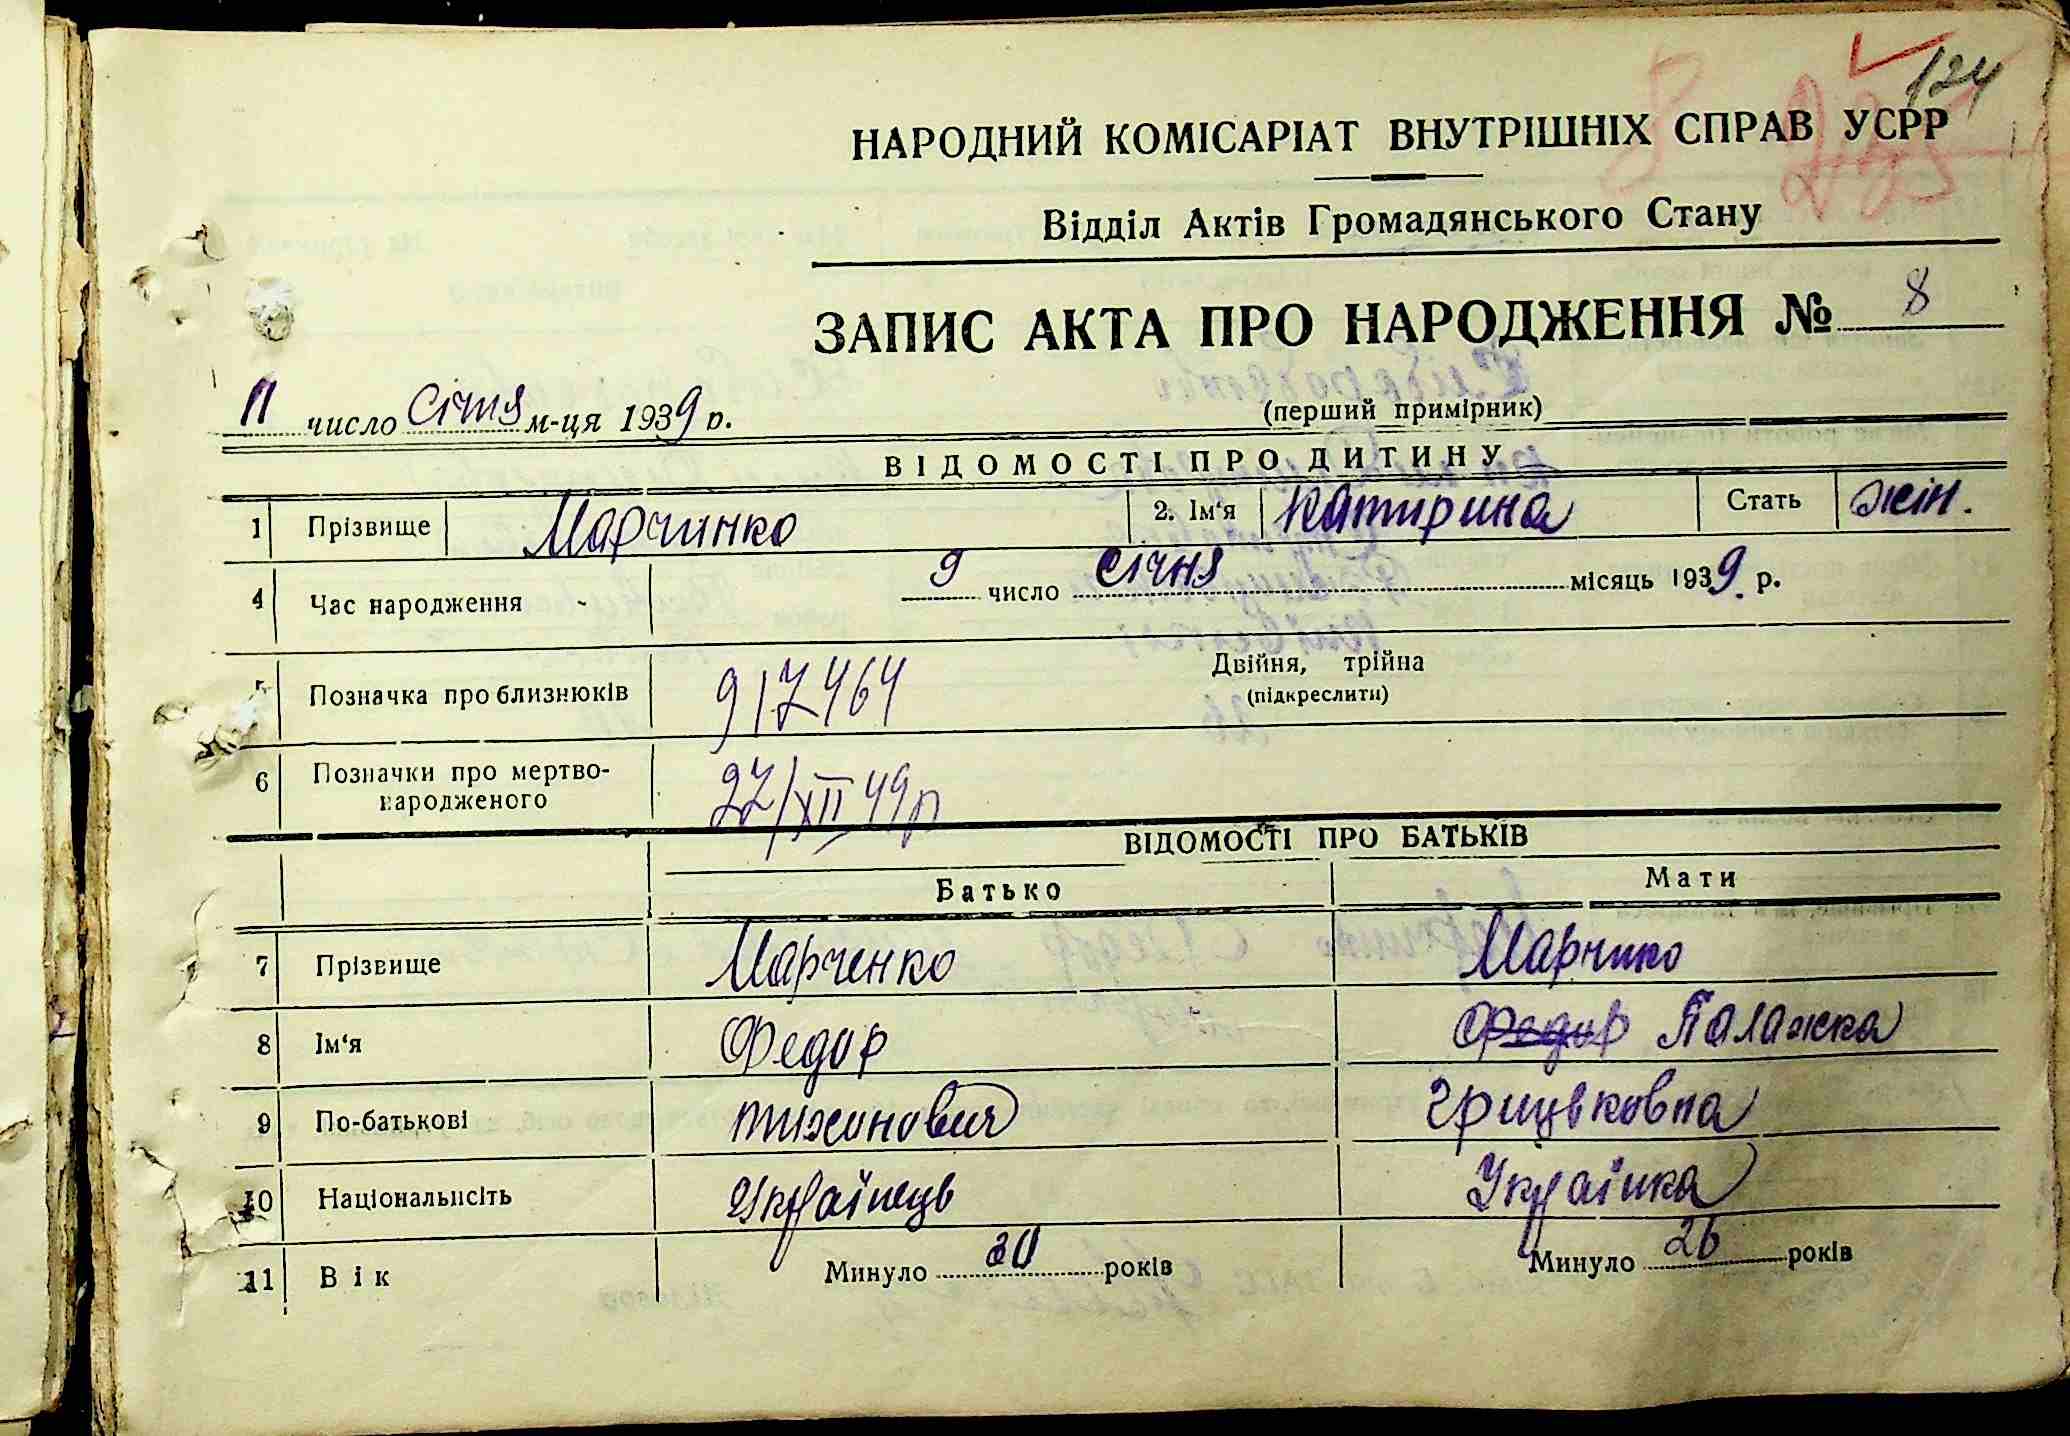 124
НАРОДНИЙ КОМІСАРІАТ ВНУТРІШНІХ СПРАВ УСРР
Відділ Актів Громадянського Стану
ЗАПИС АКТА ПРО НАРОДЖЕННЯ № 8
11 число Січня м-ця 1939 р.
(перший примірник)
ВІДОМОСТІ ПРО ДИТИНУ
1 Прізвище Марчинко 2. Ім'я Катирина Стать жін.
4 Час народження 9 число січня місяць 1939. р.
5 Позначка про близнюків 917464 Двійня, трійна
(підкреслити)
6 Позначки про мертво-
народженого 27/XII 49р
ВІДОМОСТІ ПРО БАТЬКІВ
Батько Мати
7 Прізвище Марченко Марчинко
8 Ім'я Федор Федор Палажка
9 По-батькові тихонович Грицьковна
10 Національність Українець Українка
11 Вік Минуло 30 років Минуло 26 років